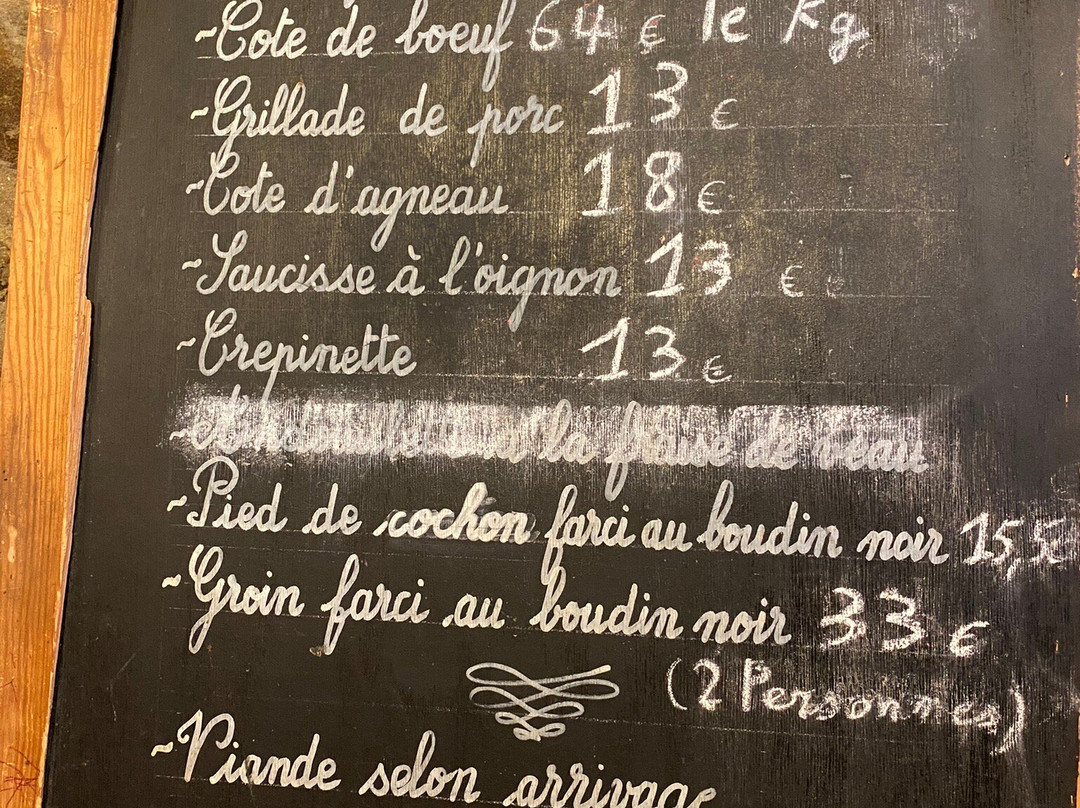 ~Cote de boeuf 64 € le Kg
~Grillade de porc 13 €
~Cote d'agneau 18 €
~Saucisse à l'oignon 13 €
~Crepinette 13 €
la fraise de veau
~Pied de cochon farci au boudin noir 15,5€
~Groin farci au boudin noir 33 €
(2 Personnes)
~Viande selon arrivage